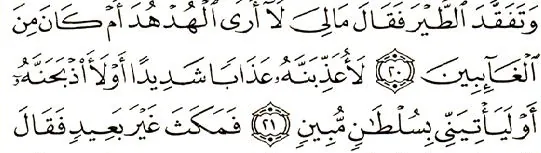 وَتَفَقَّدَ ٱلطَّيْرَ فَقَالَ مَالِيَ لَآ أَرَى ٱلْهُدْهُدَ أَمْ كَانَ مِنَ
ٱلْغَآئِبِينَ ٢٠ لَأُعَذِّبَنَّهُۥ عَذَابًا شَدِيدًا أَوْ لَأَاْذْبَحَنَّهُۥٓ
أَوْ لَيَأْتِيَنِّي بِسُلْطَٰنٍ مُّبِينٍ ٢١ فَمَكَثَ غَيْرَ بَعِيدٍ فَقَالَ